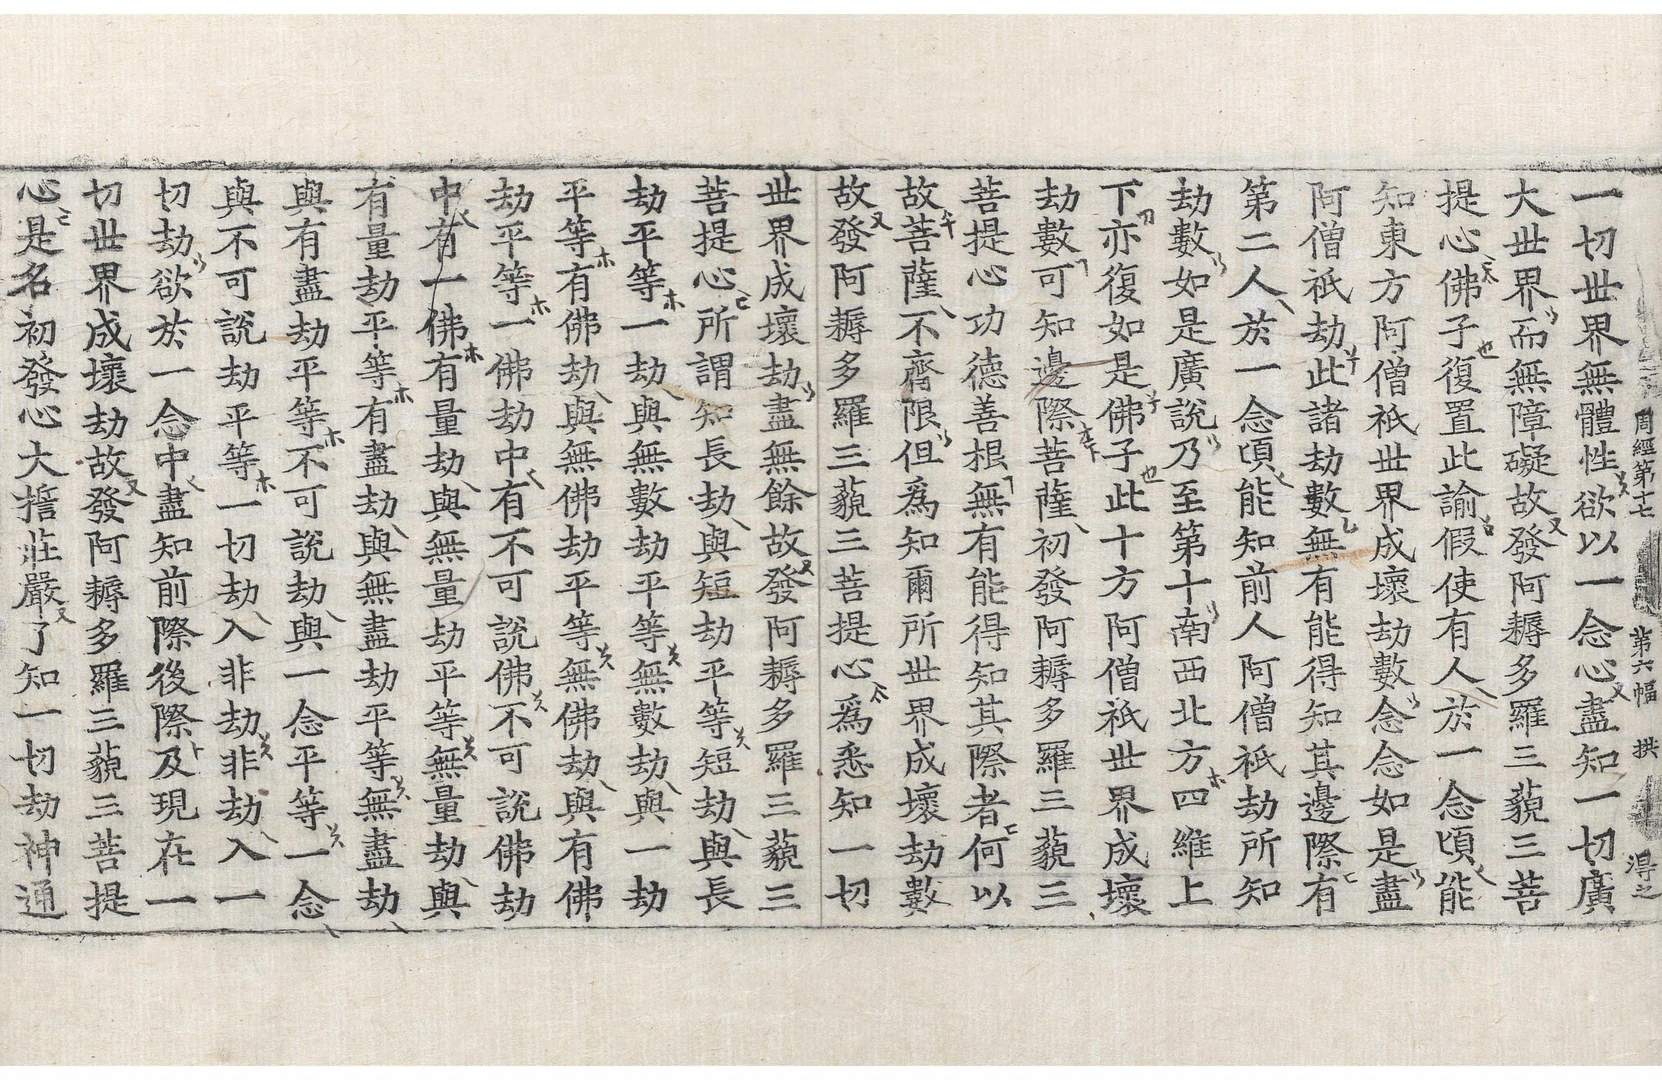 周經第十七 第六幅 拱 淂之
一切世界無體性欲以一念心盡知一切廣
大世界而無障礙故發阿耨多羅三藐三菩
提心佛子復置此諭假使有人於一念頃能
知東方阿僧祇世界成壞劫數念念如是盡
阿僧祇劫此諸劫數無有能得知其邊際有
第二人於一念頃能知前人阿僧祇劫所知
劫數如是廣說乃至第十南西北方四維上
下亦復如是佛子此十方阿僧祇世界成壞
劫數可知邊際菩薩初發阿耨多羅三藐三
菩提心功德善根無有能得知其際者何以
故菩薩不齊限但爲知爾所世界成壞劫數
故發阿耨多羅三藐三菩提心爲悉知一切
世界成壞劫盡無餘故發阿耨多羅三藐三
菩提心所謂知長劫與短劫平等短劫與長
劫平等一劫與無數劫平等無數劫與一劫
平等有佛劫與無佛劫平等無佛劫與有佛
劫平等一佛劫中有不可說佛不可說佛劫
中有一佛有量劫與無量劫平等無量劫與
有量劫平等有盡劫與無盡劫平等無盡劫
與有盡劫平等不可說劫與一念平等一念
與不可說劫平等一切劫入非劫非劫入一
切劫欲於一念中盡知前際後際及現在一
切世界成壞劫故發阿耨多羅三藐三菩提
心是名初發心大誓莊嚴了知一切劫神通